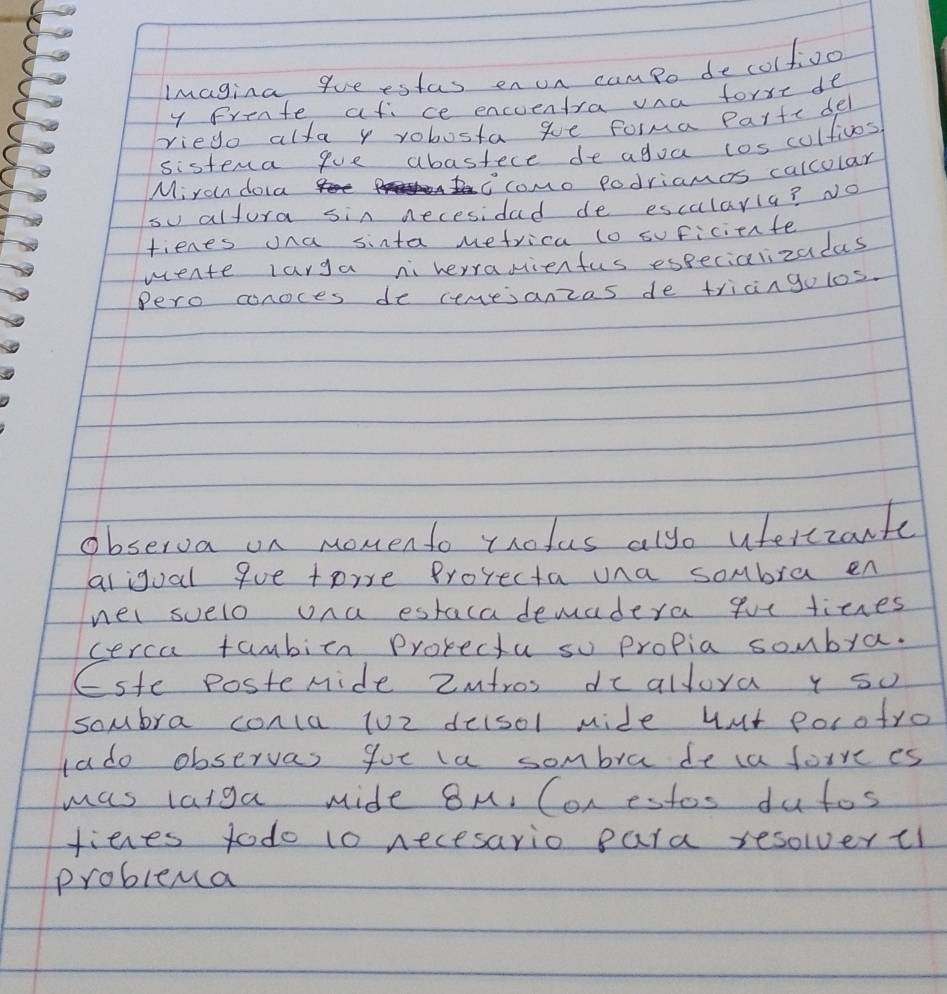 Imagina que estas en un campo de coltivo
y frente ati ce encuentra una torre de
riego alta y robusta que forma parte del
sistema que abastece de agua los cultivos.
Mirandola ¿como podriamos calcular
su altura sin necesidad de escalarla? No
tienes una sinta metrica lo suficiente
mente larga ni herramientas especializadas
pero conoces de cemejanzas de triangulos.
Observa un momento y notas algo
al igual que torre proyecta una sombra en
nel suelo una estaca de madera que tienes
cerca tambien proyecta su propia sombra.
Este poste mide 2mtros de altura y su
sombra con la luz del sol mide 4mt por otro
lado observas que la sombra de la torre es
mas larga mide 8m. Con estos datos
tienes todo lo necesario para resolver el
problema